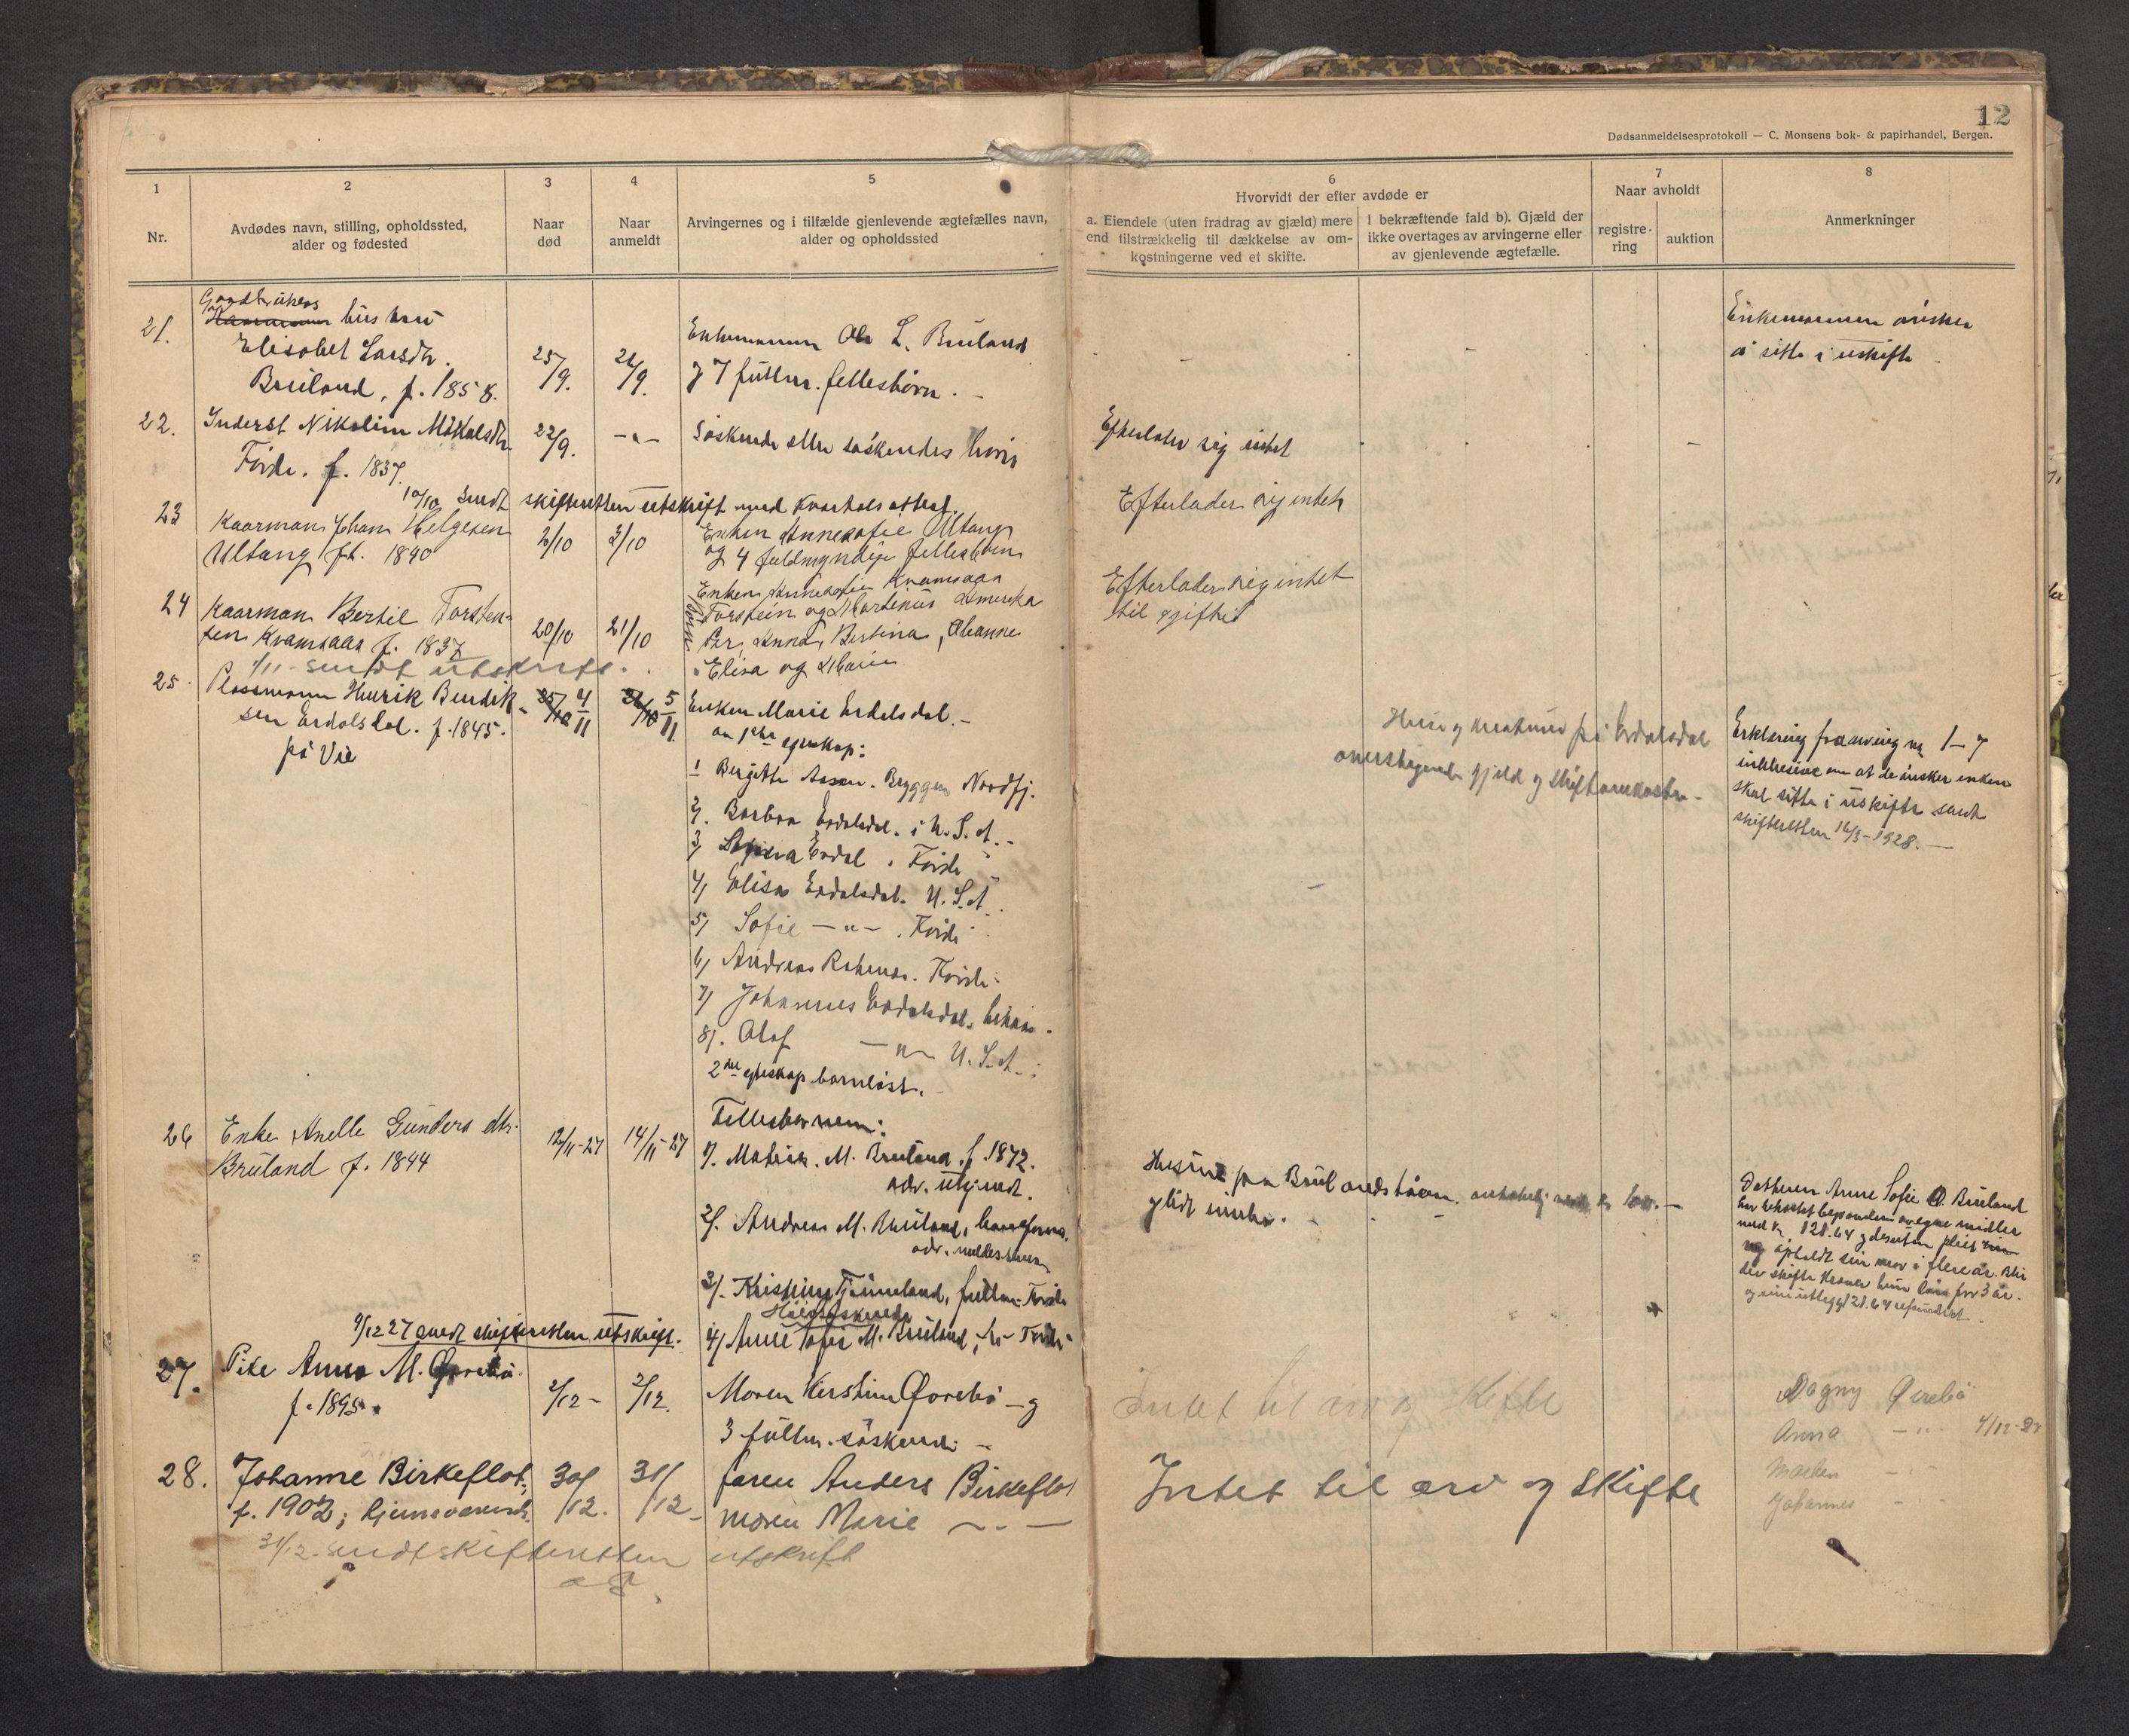 12
Dødsanmeldelsesprotokoll — C. Monsens bok- & papirhandel, Bergen.
1
2
3
4
5
6
7
8
Nr.
Avdødes navn, stilling, opholdssted,
alder og fødested
Naar
død
Naar
anmeldt
Arvingernes og i tilfælde gjenlevende ægtefælles navn,
alder og opholdssted
Hvorvidt der efter avdøde er
a. Eiendele (uten fradrag av gjæld) mere
end tilstrækkelig til dækkelse av om-
kostningerne ved et skifte.
I bekræftende fald b). Gjæld der
ikke overtages av arvingerne eller
av gjenlevende ægtefælle.
Naar avholdt
registre-
ring
auktion
Anmerkninger
21.
Gaardbrukers
hustru
Elisabet Larsdtr.
Bruland, f. 1858.
25/9.
26/9.
Enkemannen Ole L. Bruland
og 7 fullm. fellesbørn.
Enkemannen ønsker
å sitte i uskifte
22.
Inderst Nikoline Mikalsdtr
Førde. f. 1837.
22/9.
-"-
Søskende eller søskendes børn
Efterlater sig intet
10/10 sendt skifteretten utskrift med kvartalsattest.
23
Kaarmann Johan Helgesen
Ultang ft. 1840
2/10
3/10
Enken Annesofie Ultang
og 4 fuldmyndige fellesbørn
Efterlader sig intet
24
Kaarman Bertil Torsten-
sen Kvamsaas f. 1837
20/10
21/10
Enken Annesofie Kvamsaas
Torstein og Martinus Amerika
Per, Anna, Bertina, Oleanne
Elisa og Marie
Efterlader sig intet
til skifte
1/11 - sendt utskrift.
25
Plassmann Henrik Bendik-
sen Erdalsdal. f. 1845.
på Vie
25/10 4/11
26/10 5/11.
Enken Marie Erdalsdal. -
av 1ste egteskap:
1 Bergitte Aasen. Bryggen Nordfj.
2. Barbra Erdalsdal. i U.S.A. -
3) Erdal. Førde
4) Elisa Erdalsdal. U.S.A.
5) Sofie -"- . Førde
6) Andreas . Førde.
7) Johannes Erdalsdal.
8). Olaf -"- U.S.A.
2det egteskap barnløst.
Huse og kreaturer på Erdalsdal
overstigende gjeld og skifteomkostn.
Erklæring fra arving nr 1-7
inklusive om at de ønsker enken
skal sitte i uskifte sendt
skifteretten 16/3-1928.
26
Enke Anelle Gunders dtr.
Bruland f. 1844
12/11-27
14/11-27
Fellesbørnene:
1). M. Bruland f. 1872.
adr. ubekjendt.
2). Andreas M. Bruland,
3). Kristine Tjønneland, fullm. Førde
4) Anne Sofie M. Bruland, -"- Førde
Husene på Brulandshåen.
og litt innbo.
Datteren Anne Sofie Bruland
har bekostet begravelsen av egne midler
med kr. 128.64 og desuten pleiet
og opholdt sin mor i flere år. Blir
der skifte krever hun løn for 3 år.
og sine utlegg 128.64 refundert.
9/12 27 sendt skifteretten utskrift.
27.
Pike Anna M. Øvrebø.
f. 1895.
2/12 -
2/12.
Moren Kerstine Øvrebø og
3 fullm. søskende -
Intet til arv og skifte
Dagny Øvrebø
Anna -"- 4/12-27
-"-
Johannes -"-
28.
Johanne Birkeflot,
f. 1902; hjemmeværende.
30/12.
31/12
faren Anders Birkeflot
moren Marie -"-
Intet til arv og skifte
31/12. sendt skifteretten utskrift